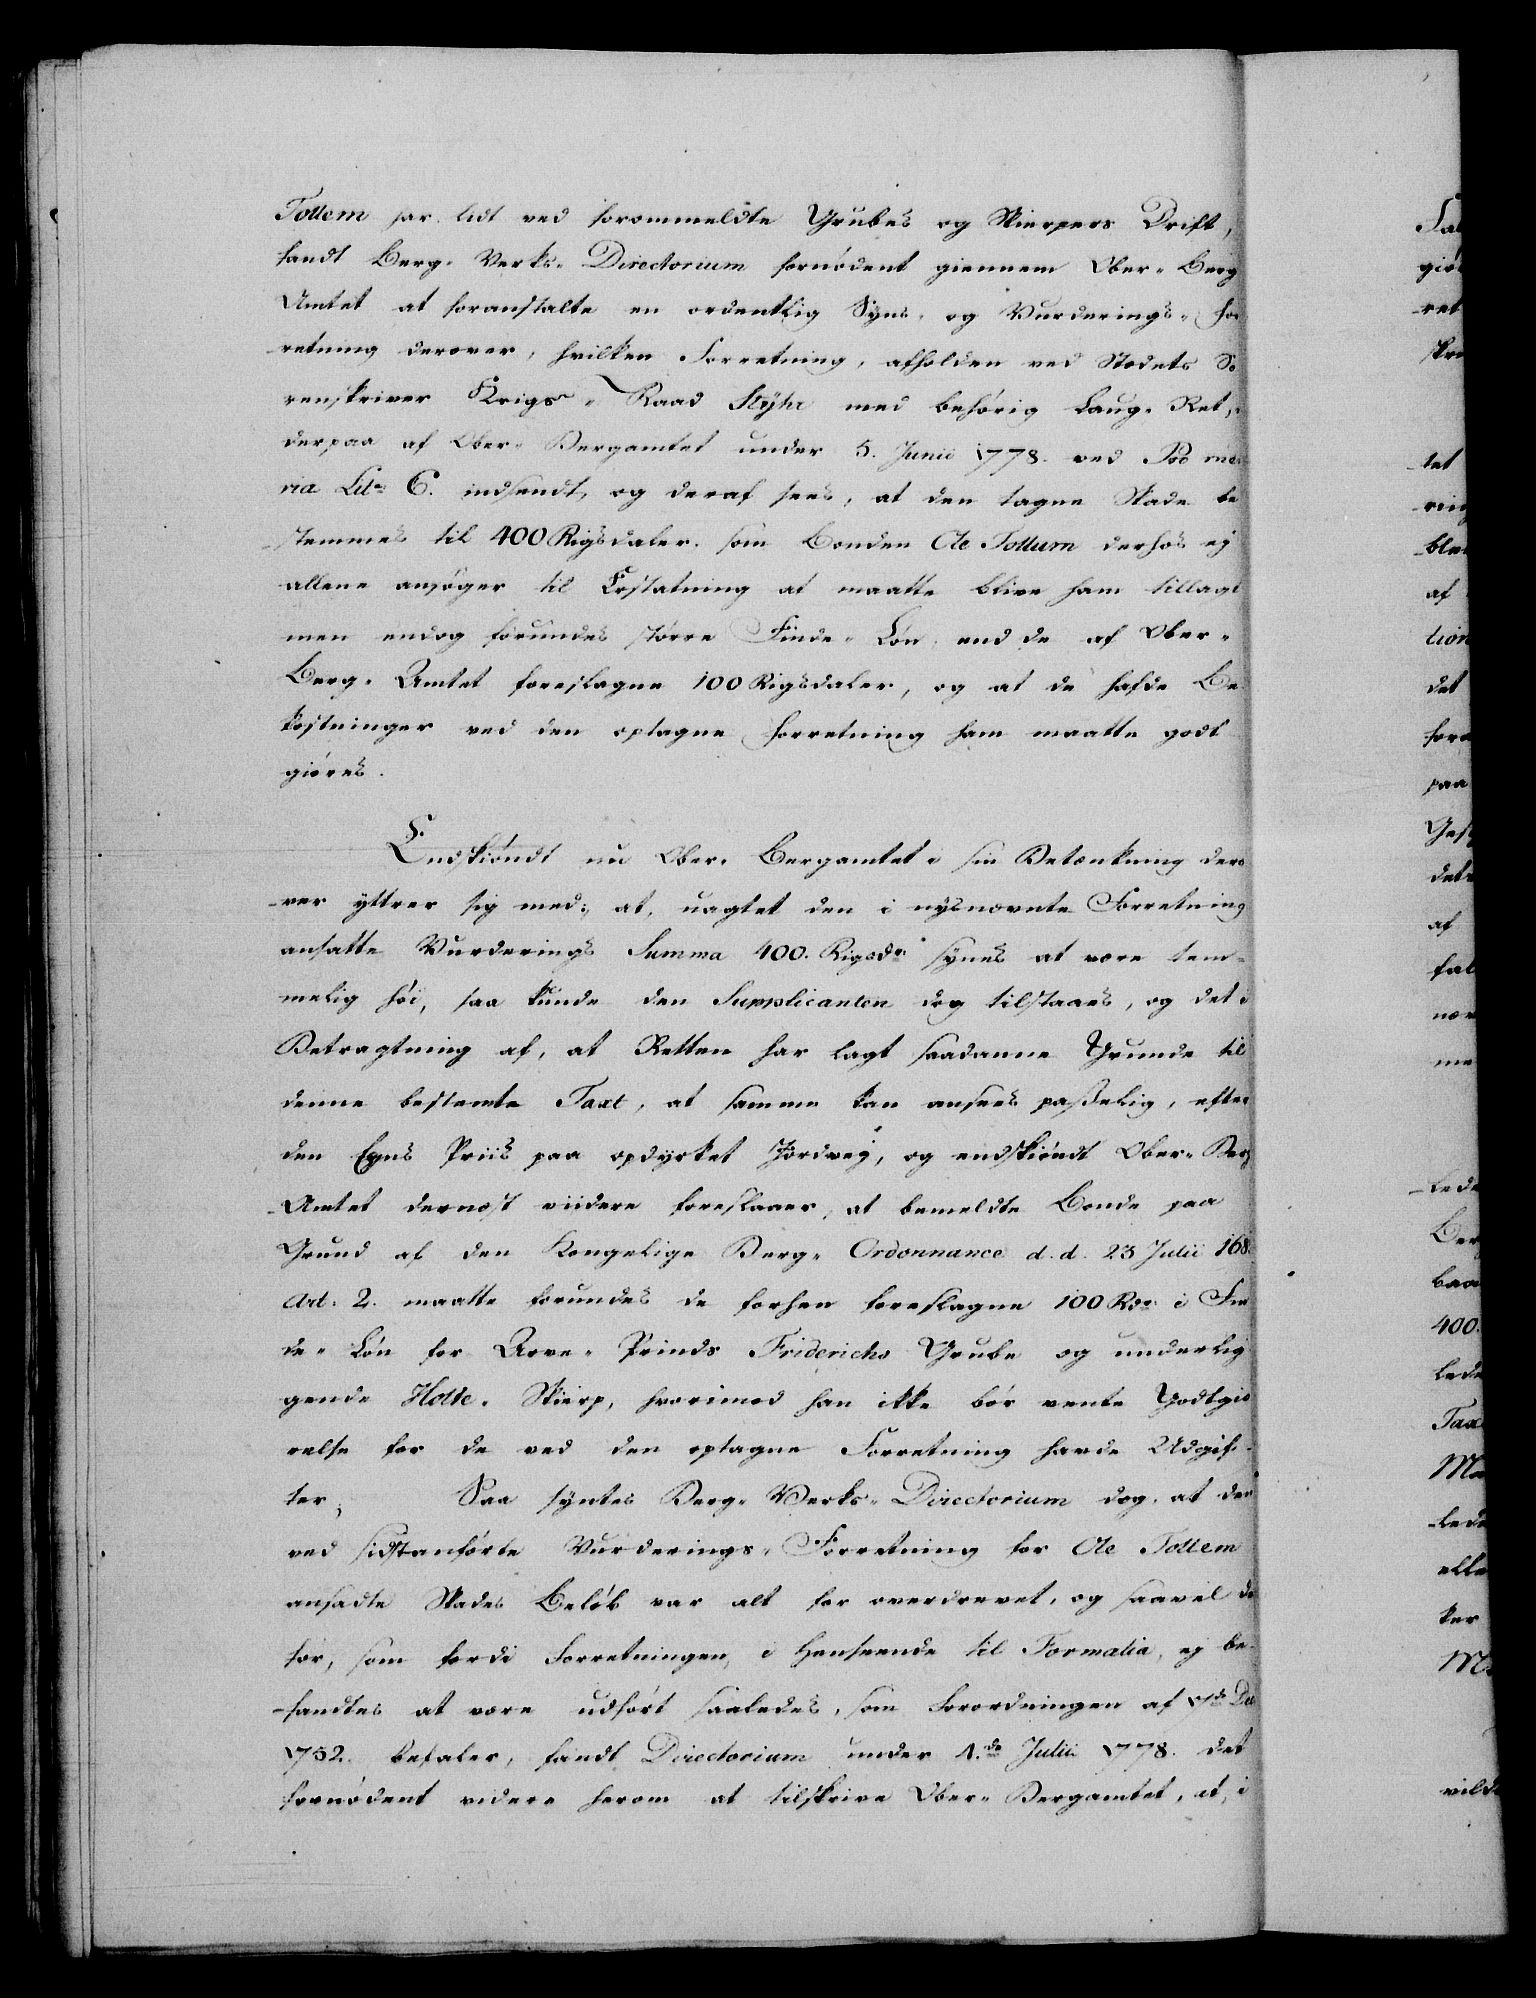 Tottem har lidt ved forommeldte Grubes og Skierpers Drift,
fandt Berg-Verks-Directorium fornødent giennem Ober-Berg
Amtet at foranstalte en ordentlig Syns- og Vurderings-For
retning derover, hvilken Forretning, afholden ved Stedets So
renskriver Krigs-Raad Støhr med behörig Laug-Ret,
derpaa af Ober-Bergamtet under 5. Junii 1778. ved Pro me
ria Lit. C. indsendt, og deraf sees, at den tagne Skade be
stemmes til 400 Rigsdaler. som Bonden Ole Tottum derhos ej
allene ansøger til Erstatning at maatte blive ham tillagt
men endog forundes större Finde-Løn, end de af Ober-
Berg-Amtet foreslagne 100 Rigsdaler, og at de hafde Be
kostninger ved den optagne Forretning ham maatte godt
giøres.
Endskiöndt nu Ober-Bergamtet i sin Betænkning dero
ver yttrer sig med: at, uagtet den i nysnævnte Forretning
ansatte Vurderings Summa 400. Rigsdr. synes at være tem-
melig höi, saa kunde den Supplicanten dog tilstaaes, og det i
Betragtning af, at Retten har lagt saadanne Grunde til
denne bestemte Taxt, at samme kan ansees passelig, efter
den Egns Priis paa opdyrket Jordvej, og endskiöndt Ober-Berg
Amtet dernæst viidere foreslaaer, at bemeldte Bonde paa
Grund af den Kongelige Berg-Ordonnance d. d. 23 Julii 168
Art. 2. maatte forundes de forhen foreslagne 100 Rdr. i Fin
de-Løn for Arve-Prinds Friderichs Grube og underlig
gende Holte-Skierp, hvorimod han ikke bör vente Godtgiö
relse for de ved den optagne Forretning havde Udgif-
ter; Saa syntes Berg-Verks-Directorium dog, at den
ved sidstanförte Vurderings-Forretning for Ole Tottem
ansadte Skades Beløb var alt for overdrevet, og saavel der
for, som fordi Forretningen, i Henseende til Formalia, ej be-
fandtes at være udfört saaledes, som Forordningen af 7de Dec
1752. befaler, fandt Directorium under 1.de Julii 1778. det
fornødent videre herom at tilskrive Ober-Bergamtet, at, i